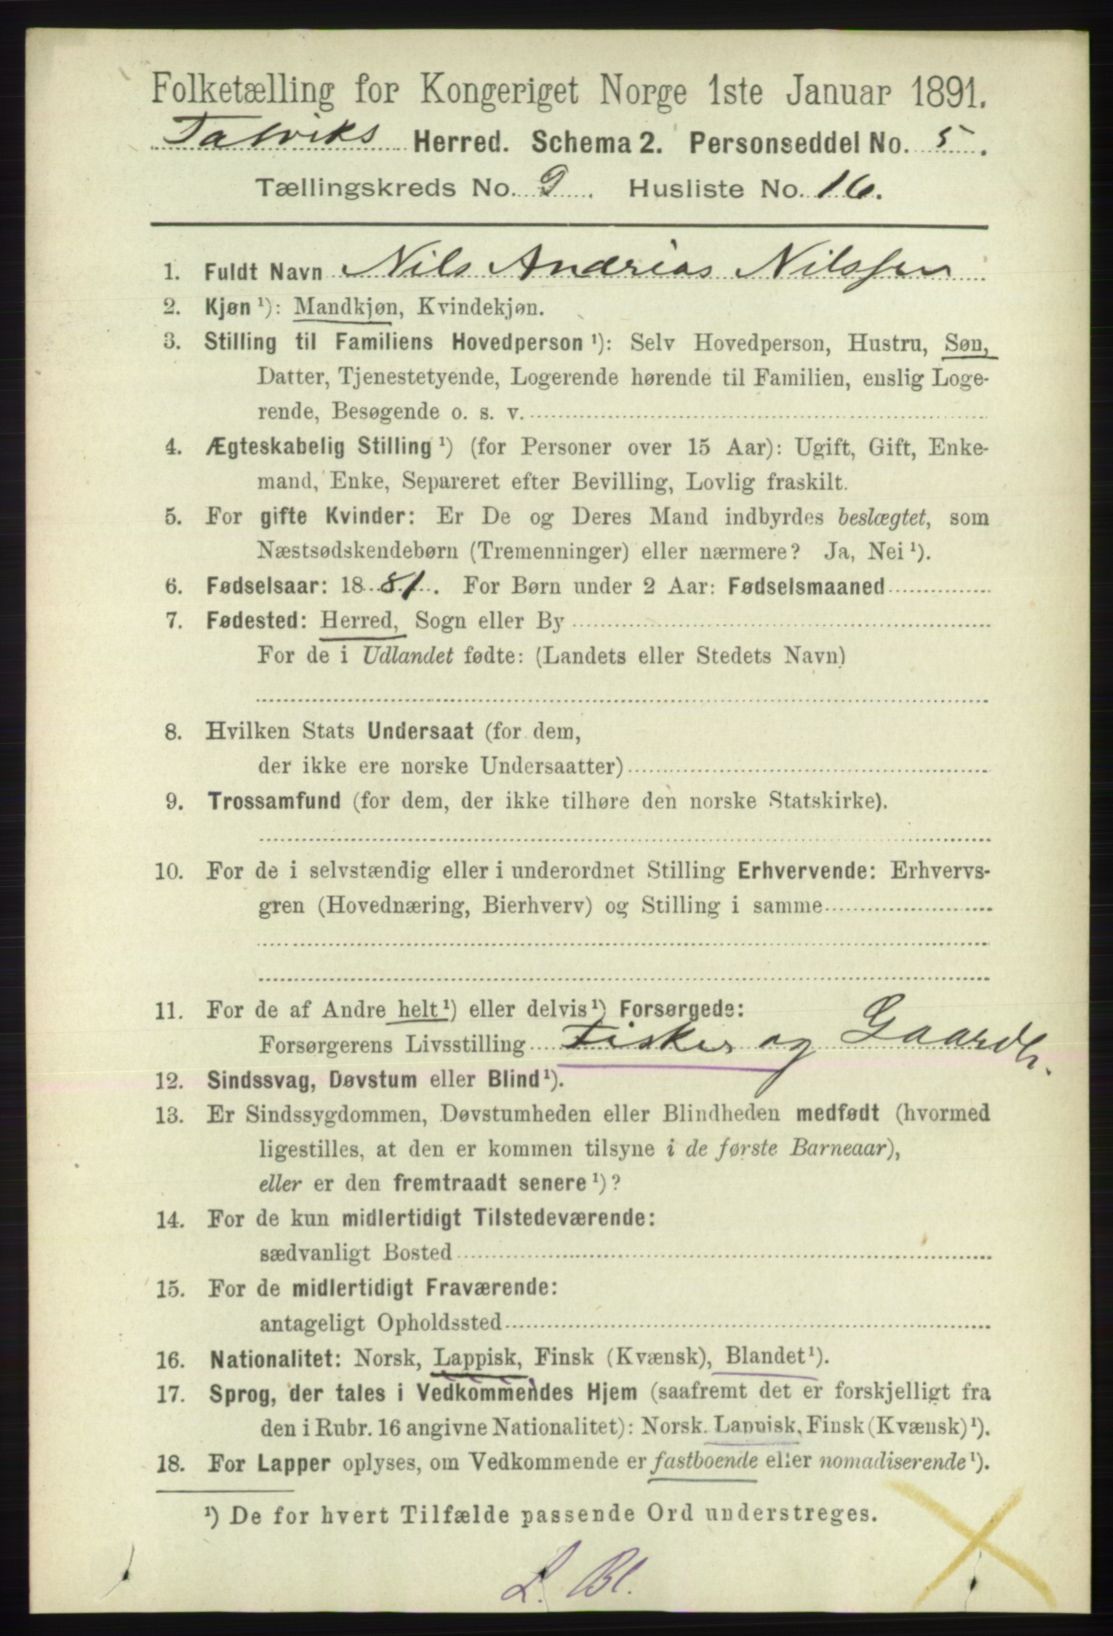 Folketælling for Kongeriget Norge 1ste Januar 1891.
Talviks Herred. Schema 2. Personseddel No. 5.
Tællingskreds No. 9. Husliste No. 16.
1. Fuldt Navn Nils Andrias Nilssen
2. Kjøn ¹): Mandkjøn, Kvindekjøn.
3. Stilling til Familiens Hovedperson ¹): Selv Hovedperson, Hustru, Søn,
Datter, Tjenestetyende, Logerende hørende til Familien, enslig Loge-
rende, Besøgende o. s. v.
4. Ægteskabelig Stilling ¹) (for Personer over 15 Aar): Ugift, Gift, Enke-
mand, Enke, Separeret efter Bevilling, Lovlig fraskilt.
5. For gifte Kvinder: Er De og Deres Mand indbyrdes beslægtet, som
Næstsødskendebørn (Tremenninger) eller nærmere? Ja, Nei ¹).
6. Fødselsaar: 1881. For Børn under 2 Aar: Fødselsmaaned
7. Fødested: Herred, Sogn eller By
For de i Udlandet fødte: (Landets eller Stedets Navn)
8. Hvilken Stats Undersaat (for dem,
der ikke ere norske Undersaatter)
9. Trossamfund (for dem, der ikke tilhøre den norske Statskirke).
10. For de i selvstændig eller i underordnet Stilling Erhvervende: Erhvervs-
gren (Hovednæring, Bierhverv) og Stilling i samme
11. For de af Andre helt ¹) eller delvis ¹) Forsørgede:
Forsørgerens Livsstilling Fisker og Gaardb.
12. Sindssvag, Døvstum eller Blind ¹).
13. Er Sindssygdommen, Døvstumheden eller Blindheden medfødt (hvormed
ligestilles, at den er kommen tilsyne i de første Barneaar),
eller er den fremtraadt senere ¹)?
14. For de kun midlertidigt Tilstedeværende:
sædvanligt Bosted
15. For de midlertidigt Fraværende:
antageligt Opholdssted
16. Nationalitet: Norsk, Lappisk, Finsk (Kvænsk), Blandet ¹).
17. Sprog, der tales i Vedkommendes Hjem (saafremt det er forskjelligt fra
den i Rubr. 16 angivne Nationalitet): Norsk. Lappisk, Finsk (Kvænsk) ¹).
18. For Lapper oplyses, om Vedkommende er fastboende eller nomadiserende ¹).
¹) De for hvert Tilfælde passende Ord understreges.
L. Bl.